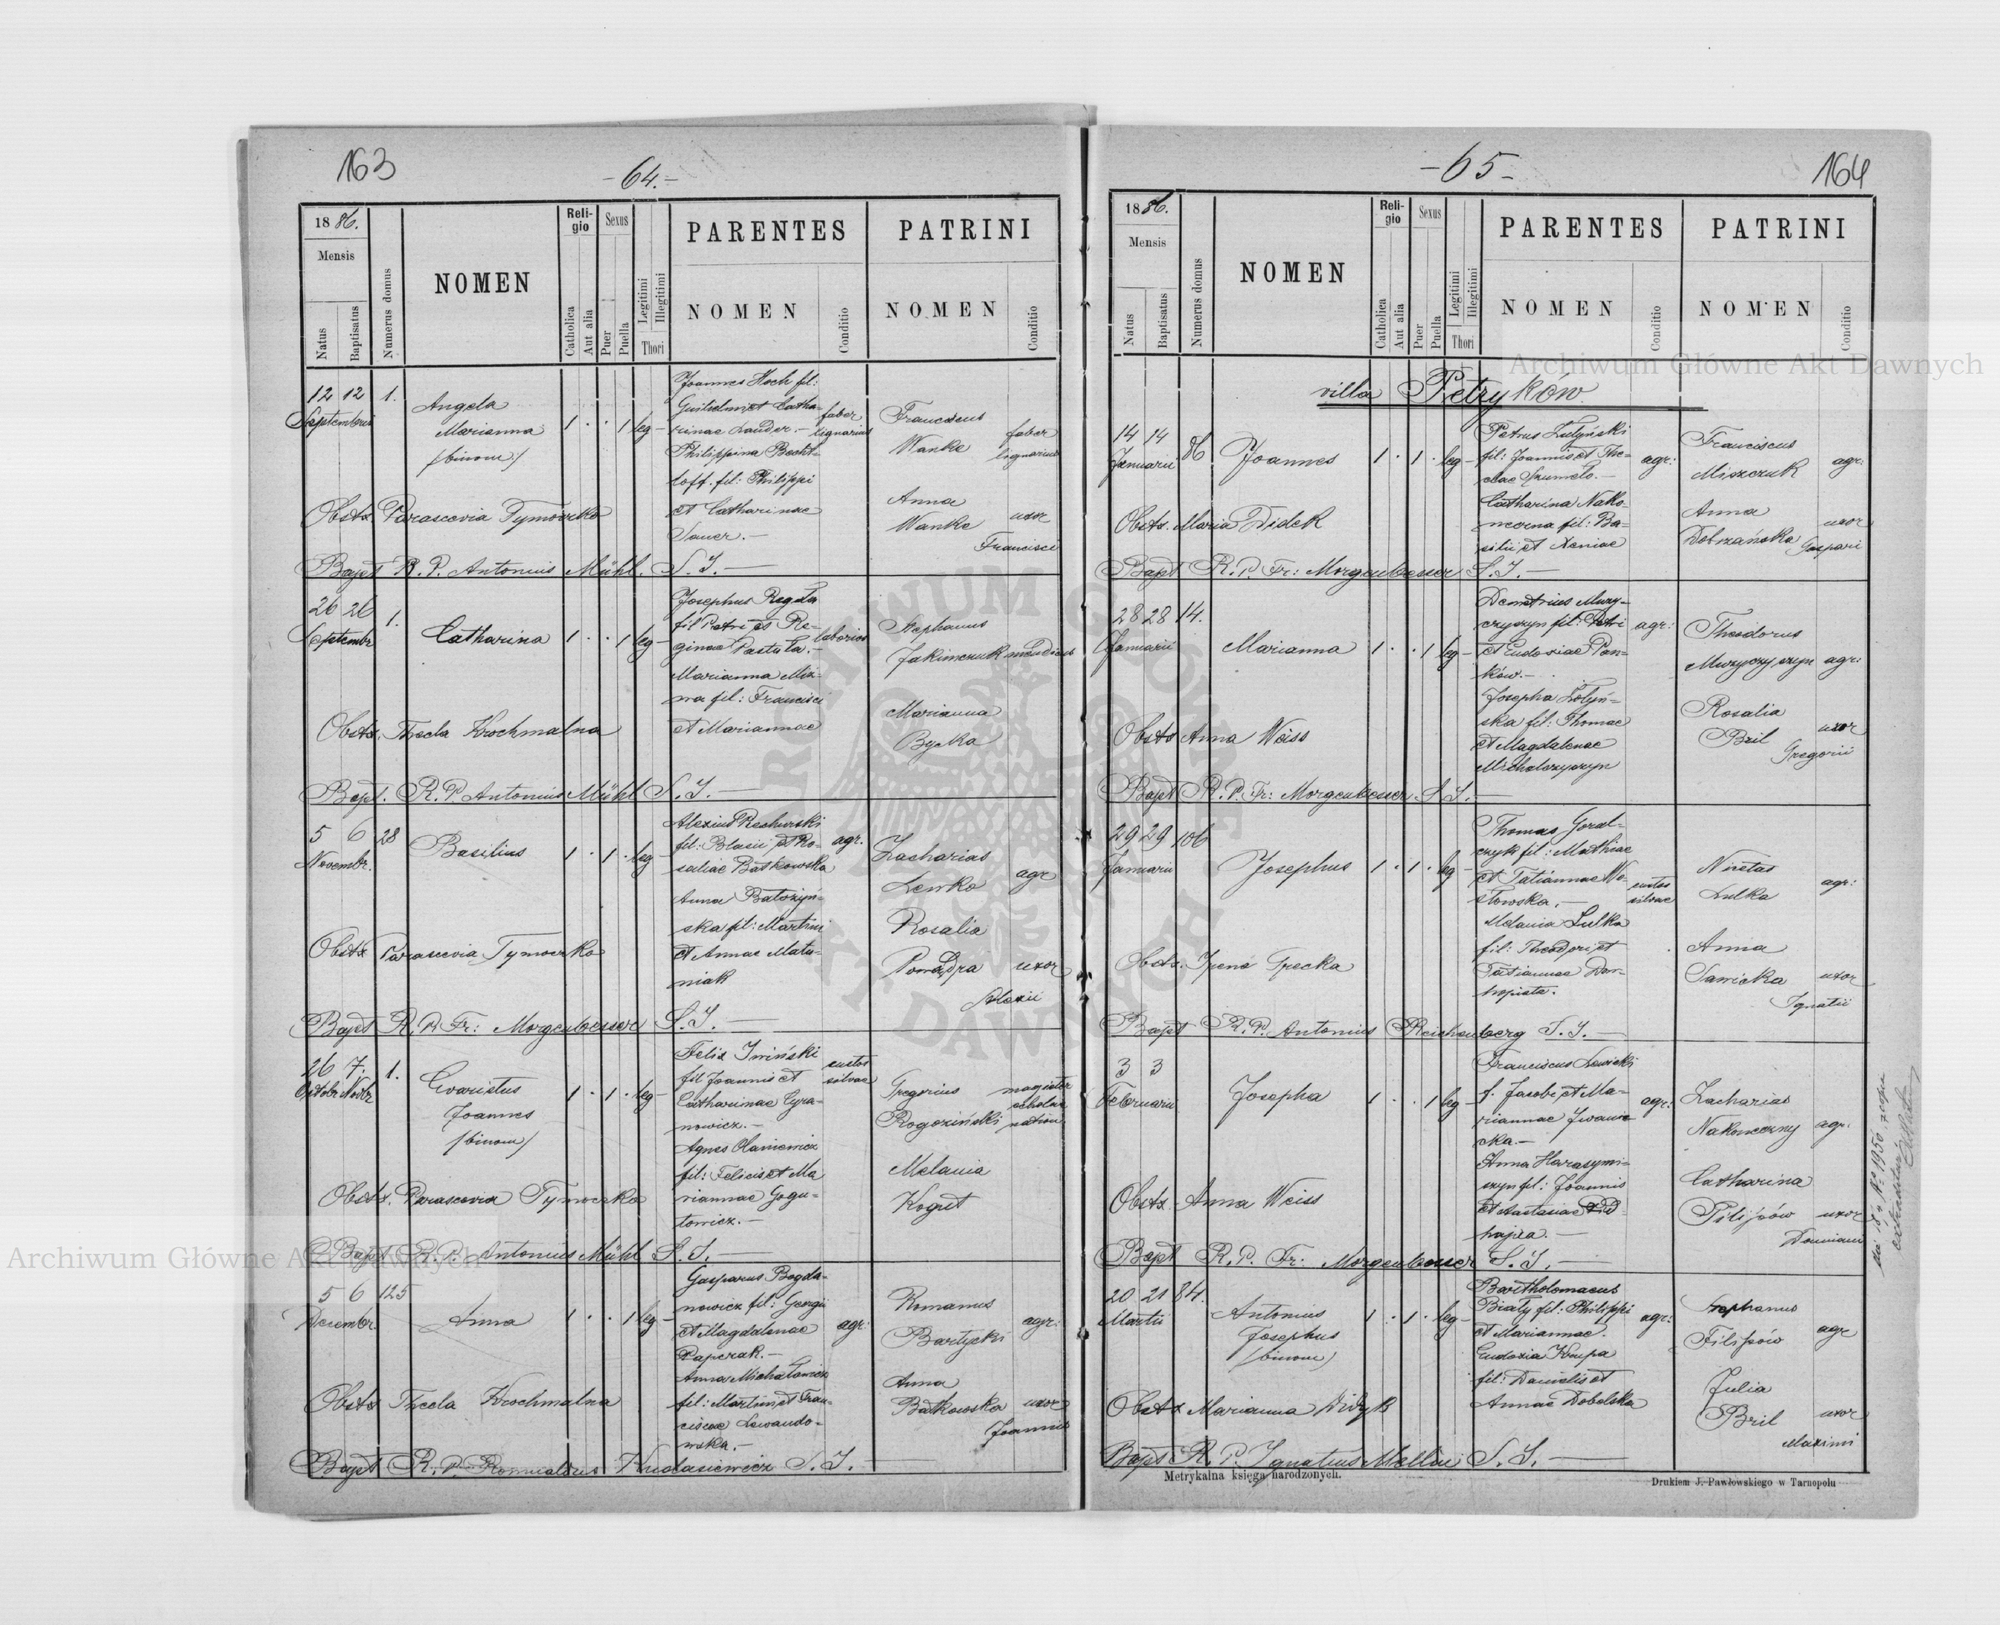 163
- 64. -
1886.
Mensis
Natus
Baptisatus
Numerus domus
NOMEN
Religio
Catholica
Aut alia
Sexus
Puer
Puella
Legitimi
Illegitimi
Thori
PARENTES
NOMEN
Conditio
PATRINI
NOMEN
Conditio
12 12 1.
Septembris
Angela
Marianna
/binom/
1 . . 1 leg-
Joannes Hoch fil:
Guilelmi et Catha-
rinae Lauder. -
Philippina Becht-
loff. fil: Philippi
et Catharinae
Sauer. -
faber
lignarius
Franciscus
Wanke
faber
lignarius
Anna
Wanke uxor
Francisci
Obstx Parascevia Tymoczko
Bapt R. P. Antonius Mühl. S. J. -
26 26 1.
Septembr
Catharina
1 . . 1 leg-
Josephus Reguła
fil Petri et Re-
ginae Pastuła. -
Marianna Miz-
na fil: Francisci
et Mariannae
Stephanus
Jakimczuk mendicus
Marianna
Byska
Obstx. Thecla Krochmalna
Bapt. R. P. Antonius Mühl S. J. -
5 6 28
Novembr.
Basilius
1 . 1 . leg-
Alexius
fil: Blasii et Ro-
saliae Batkowska
Anna Batożyń-
ska fil: Martini
et Annae Matu-
niak
agr.
Zacharias
Lewko agr
Rosalia
uxor
Alexii
Obstx Parascevia Tymoczko
Bapt R. P. Fr: Morgenbesser S. J. -
26 7. 1.
Octobr Novbr
Evaristus
Joannes
/binom/
1 . 1 . leg-
Felix Iwiński
fil Joannis et
Catharinae Cyra-
nowicz. -
Agnes
fil: Felicis et Ma
riannae Gogu-
towicz. -
custos
silvae
Gregorius
Rogoziński
magister
Melania
Kogut
Obstx. Parascevia Tymoczko
Bapt R. P. Antonius Mühl S. J. -
5 6 125
Decembr
Anna
1 . . 1 leg-
Gasparus Bogda-
nowicz fil: Georgii
et Magdalenae
Paperak. -
Anna Michałowicz
fil: Martini et Fran-
ciscae Lewando-
wska. -
agr:
Romanus
Bartycki
agr:
Anna
Batkowska uxor
Joannis
Obstx Thecla Krochmalna
Bapt R. P. Romualdus Kudasiewicz S. J. -
- 65 -
164
1886.
Mensis
Natus
Baptisatus
Numerus domus
NOMEN
Religio
Catholica
Aut alia
Sexus
Puer
Puella
Legitimi
Illegitimi
Thori
PARENTES
NOMEN
Conditio
PATRINI
NOMEN
Conditio
villa Petryków
14 14 86
Januarii
Joannes
1 . 1 . leg-
Petrus Żułyński
fil: Joannis et The-
clae Szumeło. -
Catharina Nako-
neczna fil: Ba-
silii et Xeniae
agr:
Franciscus
Miszczuk agr:
Anna
Dobrzańska uxor
Gaspari
Obstx. Maria Didek
Bapt R. P. Fr: Morgenbesser S. J. -
28 28 14.
Januarii
Marianna
1 . . 1 leg-
Demetrius Muzy-
czyszyn fil: Petri
et Eudoxiae Pań-
ków. -
Josepha Żołyń-
ska fil: Thomae
et Magdalenae
Michalczyszyn
agr:
Theodorus
Muzyczyszyn agr:
Rosalia
Bril uxor
Gregorii
Obstx Anna Weiss
Bapt R. P. Fr: Morgenbesser S J. -
29 29 106
Januarii
Josephus
1 . 1 . leg-
Thomas Goral-
czyk fil: Mathiae
et Tatiannae We-
sołowska. -
Melania Lulka
fil: Theodori et
Tatiannae
custos
silvae
Nicetas
Lulka agr:
Anna
Sawicka uxor
Ignatii
Obstx. Irena Grecka
Bapt R. P. Antonius Reichenberg S. J. -
3 3
Februarii
Josepha
1 . . 1 leg-
Franciscus Sawicki
f. Jacobi et Ma-
riannae Iwanic
ska. -
Anna Harasymi-
szyn fil: Joannis
et Anastasiae Pid-
hajna. -
agr:
Zacharias
Nakoneczny agr.
Catharina
Pilipów uxor
Damiani
Obstx. Anna Weiss
Bapt R. P. Fr: Morgenbesser S. J. -
20 21 84.
Martii
Antonius
Josephus
/binom/
1 . 1 . leg-
Bartholomaeus
Biały fil: Philippi
et Mariannae.
Eudoxia Krupa
fil: Danielis et
Annae Dobolska
agr:
Stephanus
Filipów agr
Julia
Bril uxor
Maximi
Obstx Marianna Didyk
Bapt R. P. Ignatius Mellin S. J. -
Metrykalna księga narodzonych.
Drukiem J. Pawłowskiego w Tarnopolu
Archiwum Główne Akt Dawnych
Archiwum Główne Akt Dawnych
ARCHIWUM GŁÓWNE AKT DAWNYCH